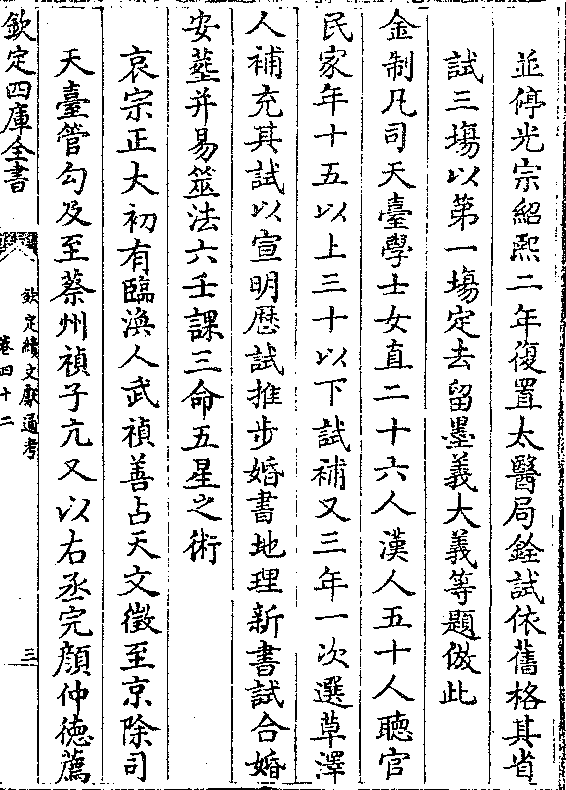 並停光宗紹熙二年復置太醫局銓試依舊格其省
試三場以第一場定去留墨義大義等題倣此
金制凡司天臺學士女直二十六人漢人五十人聽官
民家年十五以上三十以下試補又三年一次選草澤
人補充其試以宣明厯試推步婚書地理新書試合婚
安葬并易筮法六壬課三命五星之術
哀宗正大初有臨渙人武禎善占天文徵至京除司
天臺管勾及至蔡州禎子亢又以右丞完顔仲徳薦
欽定四庫全書
欽定續文獻通考
卷四十二
三